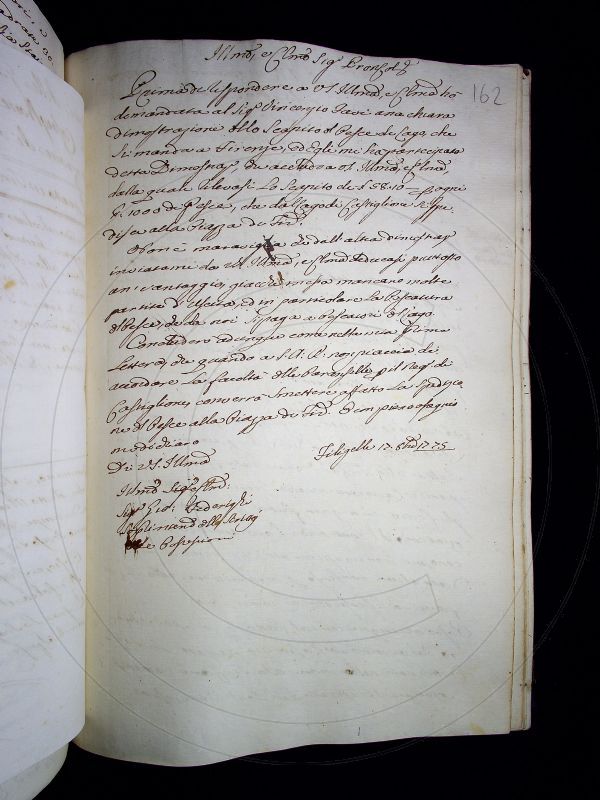 162
Illmo, e Clmo Sigr Pron Col
Prima di rispondere a VS Illma, e Clma ho
demandata al Sigr Vincenzio una chiara
dimostrazione dello Scapito del Pesce del Lago, che
si manda a Firenze, ed Egli mi ha partecipata
detta Dimostraz, che accludo a VS. Illma, e Clma,
dalla quale rilevasi lo Scapito de 58.10 ogni
1000 di Pesce, che da Lago di Castiglione si spe-
disce alla Piazza di Fir.
Non è maraviglia che dall'altra dimostraz
inviatami da VS Illma, e Clma piuttosto
un vantaggio, giacché in essa mancano molte
partite d'Uscita, ed in particolare la Pescatura
del Pesce, che da noi si paga a Pescatori di Lago.
Concludero adunque come nella mia prima
Lettera, che quando a S. A. R. non piaccia di
accordare la facoltà delle per il Reg. di
Castiglione, converrà smettere affatto la spedizio-
ne del Pesce alla Piazza di Fir. E con pieno ossequio
mi dichiaro
Di VS. Illma
17. 1775
Illmo Sigr
Sigr Gio. Federighi